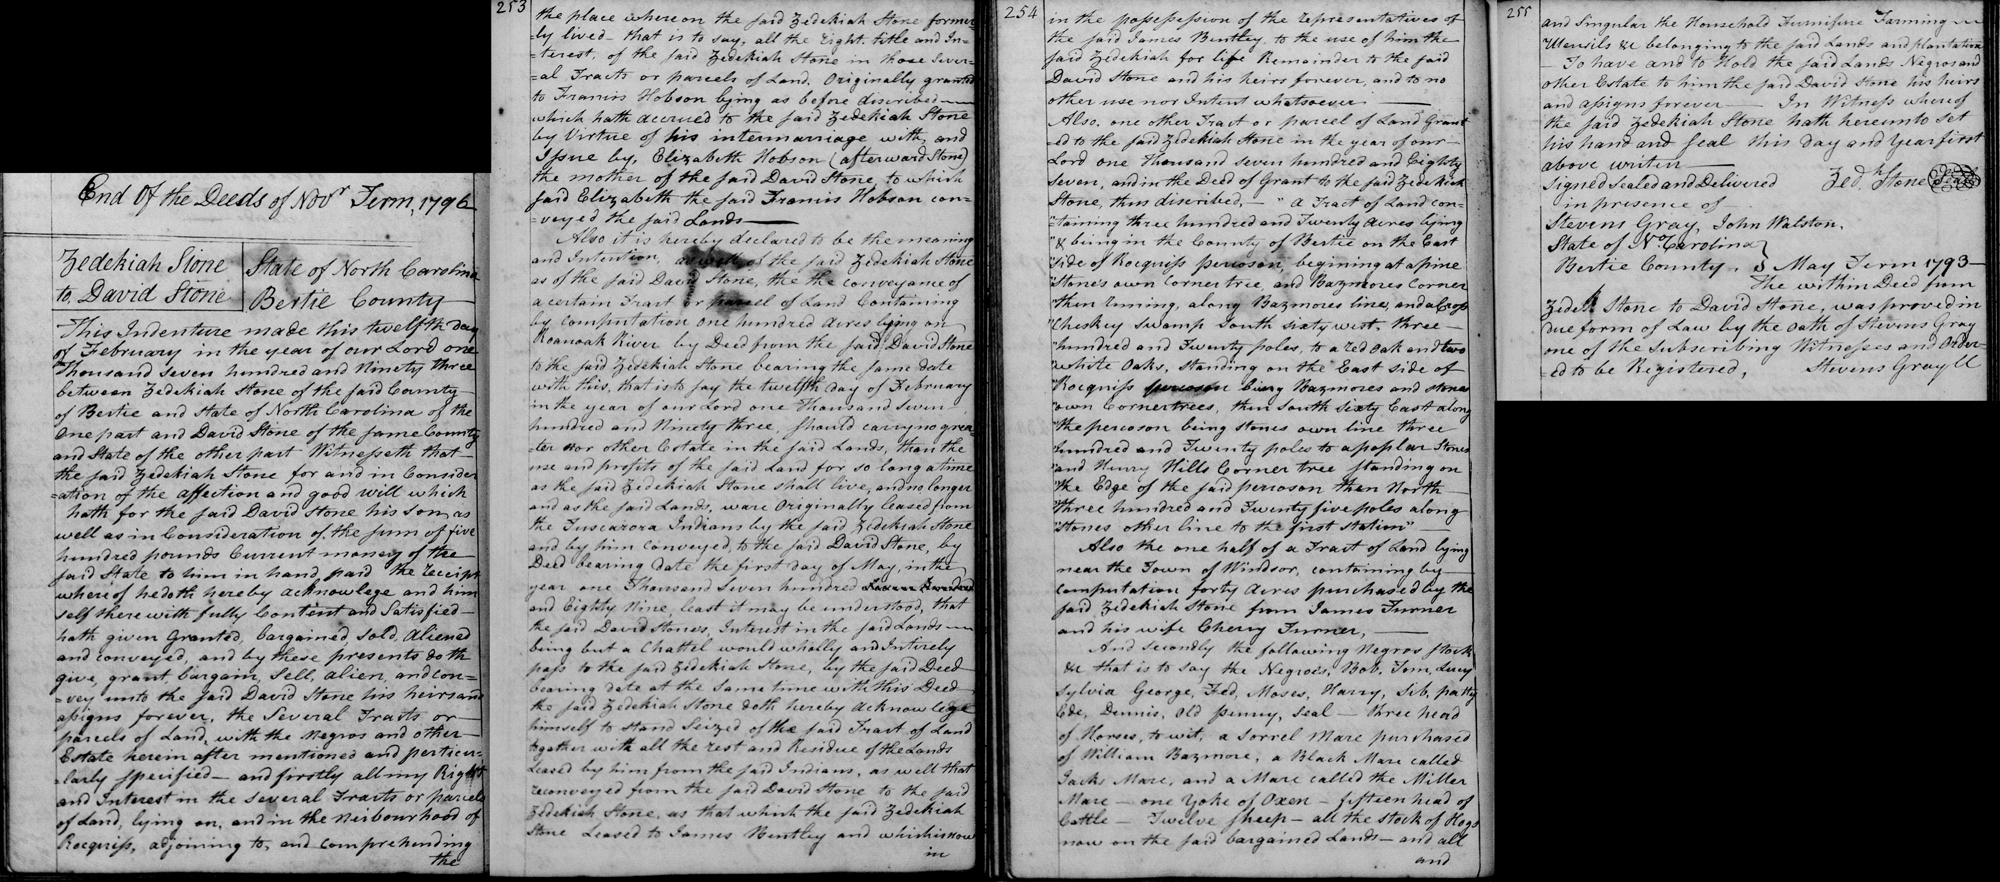 End Of the Deeds of Novr Term, 1796
Zedekiah Stone
to, David Stone
State of North Carolina
Bertie County
This Indenture made this twelfth day
of February in the year of our Lord one
Thousand seven hundred and Ninety three
between Zedekiah Stone of the said County
of Bertie and State of North Carolina of the
One part and David Stone of the same County
and State of the other part Witnesseth that
the said Zedekiah Stone for and in Consider
=ation of the affection and good will which
hath for the said David Stone his son, as
well as in Consideration of the sum of five
hundred pounds Current money of the
said State to him in hand paid the receipt
whereof he doth hereby acknowlege and him
self there with fully Content and Satisfied
hath given Granted, bargained sold, aliened
and conveyed, and by these presents doth
give, grant, bargain, sell, alien, and con=
=vey unto the said David Stone his heirs and
assigns forever, the Several Tracts or
parcels of Land, with the Negros and other
Estate herein after mentioned and perticu=
=larly specified — and firstly all my Right
and Interest in the several Tracts or parcels
of Land, lying on, and in the Neibourhood of
Rocquiss, adjoining to, and comprehending
the
253
the place whereon the said Zedekiah Stone former=
=ly lived — that is to say, all the right, title and In=
=terest, of the said Zedekiah Stone in those Sever=
=al Tracts or parcels of Land, Originally granted
to Francis Hobson lying as before discribed —
which hath accrued to the said Zedekiah Stone
by Virtue of his intermarriage with, and
Issue by, Elizabeth Hobson (afterward Stone)
the mother of the said David Stone, to which
said Elizabeth the said Francis Hobson con=
=veyed the said Lands —
Also it is hereby declared to be the meaning
and Intention, as well of the said Zedekiah Stone
as of the said David Stone, the the conveyance of
a certain Tract or parcel of Land Containing
by computation one hundred acres lying on
Roanoak River by Deed from the said David Stone
to the said Zedekiah Stone bearing the same date
with this, that is to say the twelfth day of February
in the year of our Lord one Thousand seven
hundred and Ninety three, should carry no grea=
=ter nor other Estate in the said Lands, than the
use and profits of the said Land for so long a time
as the said Zedekiah Stone shall live, and no longer
and as the said Lands, ware Originally leased from
the Tuscarora Indians by the said Zedekiah Stone
and by him Conveyed, to the said David Stone, by
Deed bearing date the first day of May, in the
year one Thousand Seven hundred
and Eighty Nine, least it may be understood, that
the said David Stones, Interest in the said Lands —
being but a Chattel would wholly and Intirely
pass to the said Zedekiah Stone, by the said Deed
bearing date at the same time with this Deed
the said Zedekiah Stone doth hereby acknowlege
himself to stand Seized of the said Tract of Land
together with all the rest and Residue of the Lands
Leased by him from the said Indians, as well that
reconveyed from the said David Stone to the said
Zedekiah Stone, as that which the said Zedekiah
Stone Leased to James Bentley and which is now
in
254
in the possepession of the representatives of
the said James Bentley, to the use of him the
said Zedekiah for life Remainder to the said
David Stone and his heirs forever, and to no
other use nor Intent whatsoever —
Also, one other Tract or parcel of Land Grant
=ed to the said Zedekiah Stone in the year of our
Lord one Thousand seven hundred and Eighty
seven, and in the Deed of Grant to the said Zedekiah
Stone, thus discribed, — "a Tract of Land con=
"taining three hundred and Twenty Acres lying
"& being in the County of Bertie on the East
"side of Rocquiss percoson, begining at a pine
"Stone's own Corner tree, and Bazmores Corner
"then runing, along Bazmores line, and a Cross
"Cheskey Swamp South sixty west, three
"hundred and Twenty poles, to a red Oak and two
"white Oaks, Standing on the East side of
"Rocquiss percoson being Bazmores and stones
"own Corner trees, then South sixty East along
"the percoson being stones own line three
"hundred and Twenty poles to a poplar Stones
"and Henry Hills Corner tree standing on
"the Edge of the said percoson then North
"three hundred and Twenty five poles along
"Stones other line to the first station" —
Also the one half of a Tract of Land lying
near the Town of Windsor, containing by
Computation forty Acres purchased by the
said Zedekiah Stone from James Turner
and his wife Cherry Turner, —
And secondly the following Negros stock
&c that is to say the Negroes, Bob, Tom, Lucy
Sylvia George, Fed, Moses, Harry, Sib, patty
Ede, Dennis, Old penny, Seal — three head
of Horses, to wit, a Sorrel Mare purchased
of William Bazmore, a Black Mare called
Jacks Mare, and a Mare called the Miller
Mare — one Yoke of Oxen — fifteen head of
Cattle — Twelve sheep — all the stock of Hogs
now on the said bargained Lands — and all
and
255
and Singular the Household Furniture Farming
Utensils &c belonging to the said Lands and plantation
— To have and to Hold the said Lands Negros and
other Estate to him the said David Stone his heirs
and assigns forever — In Witness whereof
the said Zedekiah Stone hath hereunto set
his hand and seal this Day and Year first
above writen —
Signed sealed and Delivered Zedh Stone Seal
in presence of
Stevens Gray, John Watston.
State of No Carolina }
Bertie County. } May Term 1793 —
The within Deed from
Zedeh Stone to David Stone, was proved in
due form of Law by the Oath of Stevens Gray
one of the Subscribing Witnesses and Order
=ed to be Registered, Stevens Gray CC